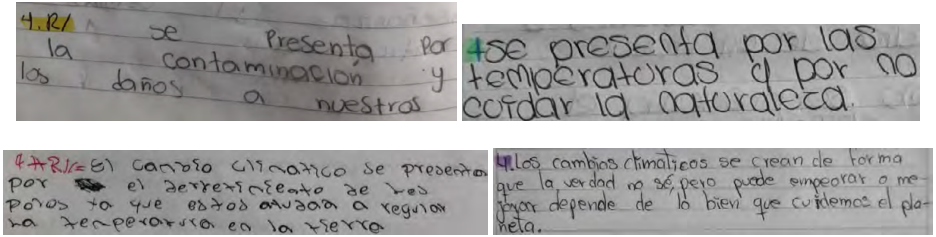 4.R/ se Presenta Por
la contaminación y
los daños a nuestros
4se presenta por las
temperatoras y por no
coidar la natoraleza.
4 R//= El cambio climatico se presenta
por el derretimiento de los
polos ya que estos ayudan a regular
la temperatura en la tierra
4. Los cambios climaticos se crean de forma
que la verdad no sé, pero puede empeorar o me-
jorar depende de lo bien que cuidemos el pla-
neta.